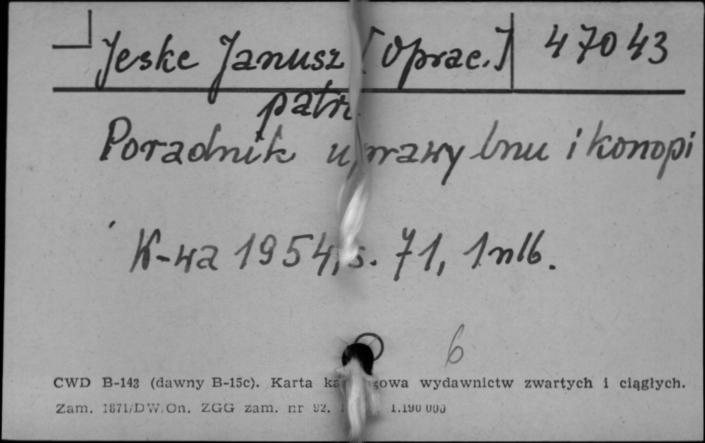 Jeske Janusz [Oprac.] 47043
patrz
Poradnik uprawy lnu i konopi
K-wa 1954, s. 71, 1 nlb.
6
CWD B-143 (dawny B-15c). Karta wydawnictw zwartych i ciągłych.
Zam. 1871/DW/On. ZGG zam. nr 92. 1.190 000